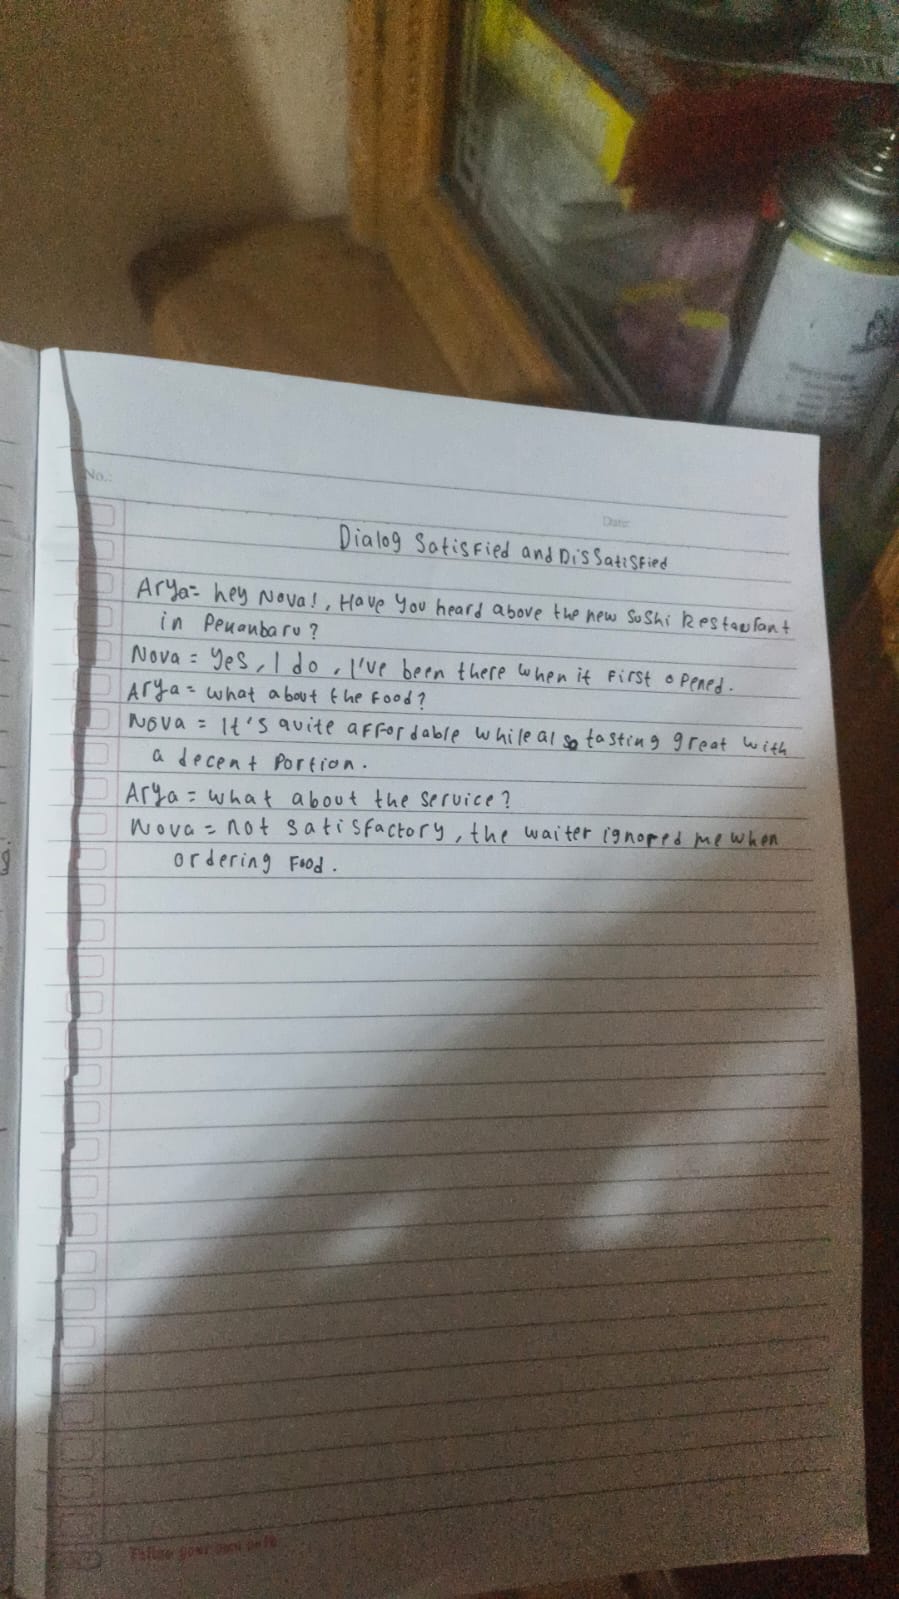 No.:
Date:
Dialog Satisfied and Dissatisfied
Arya = hey Nova!, Have you heard above the new Sushi Restaurant
in Pekanbaru?
Nova = Yes, I do, I've been there when it first opened.
Arya = what about the food?
Nova = It's quite affordable while also tasting great with
a decent portion.
Arya = what about the service?
Nova = not satisfactory, the waiter ignored me when
ordering food.
Follow your own path